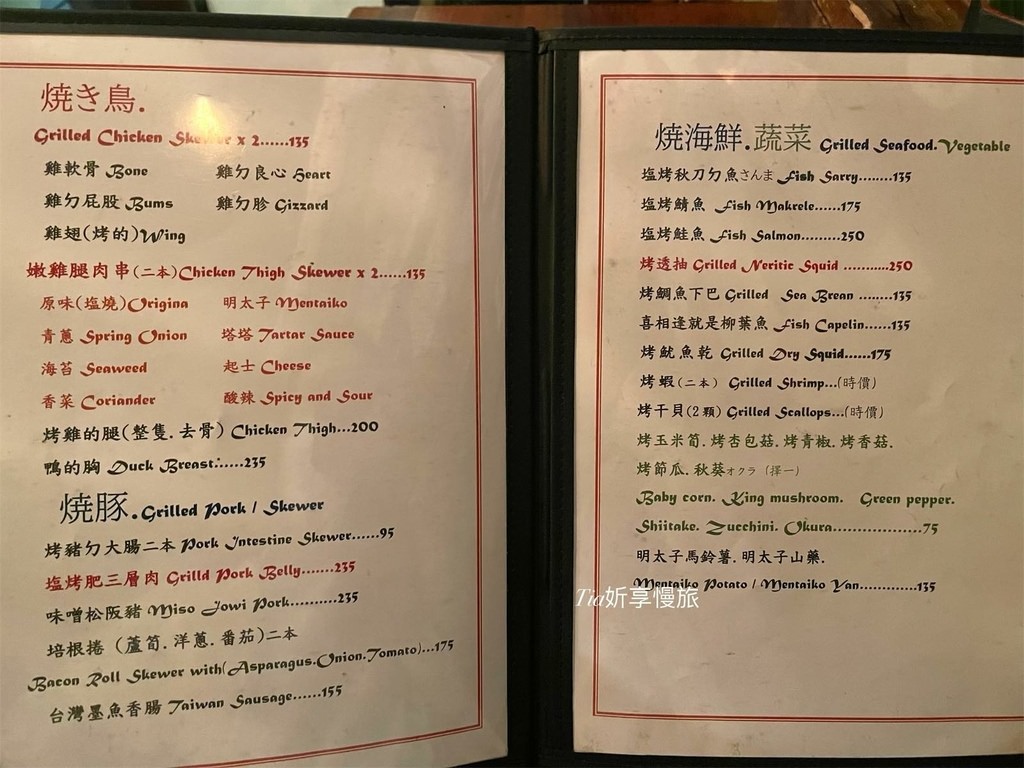 焼き鳥.
Grilled Chicken Skewer x 2......135
雞軟骨 Bone 雞ㄉ良心 Heart
雞ㄉ屁股 Bums 雞ㄉ胗 Gizzard
雞翅(烤的)Wing
嫩雞腿肉串(二本)Chicken Thigh Skewer x 2......135
原味(塩燒)Origina 明太子 Mentaiko
青蔥 Spring Onion 塔塔 Tartar Sauce
海苔 Seaweed 起士 Cheese
香菜 Coriander 酸辣 Spicy and Sour
烤雞的腿(整隻.去骨) Chicken Thigh...200
鴨的胸 Duck Breast......235
焼豚.Grilled Pork / Skewer
烤豬ㄉ大腸二本 Pork Intestine Skewer......95
塩烤肥三層肉 Grilld Pork Belly.......235
味噌松阪豬 Miso Jowi Pork..........235
培根捲 (蘆筍.洋蔥.番茄)二本
Bacon Roll Skewer with(Asparagus.Onion.Tomato)...175
台灣墨魚香腸 Taiwan Sausage......155
焼海鮮.蔬菜 Grilled Seafood.Vegetable
塩烤秋刀ㄉ魚さんま Fish Sarry........135
塩烤鯖魚 Fish Makrele......175
塩烤鮭魚 Fish Salmon.........250
烤透抽 Grilled Neritic Squid ...........250
烤鯛魚下巴 Grilled Sea Brean ........135
喜相逢就是柳葉魚 Fish Capelin......135
烤魷魚乾 Grilled Dry Squid......175
烤蝦(二本) Grilled Shrimp...(時價)
烤干貝(2顆) Grilled Scallops...(時價)
烤玉米筍.烤杏包菇.烤青椒.烤香菇.
烤節瓜.秋葵オクラ (擇一)
Baby corn. King mushroom. Green pepper.
Shiitake. Zucchini. Okura.................75
明太子馬鈴薯.明太子山藥.
Mentaiko Potato / Mentaiko Yan............135
Tia妡享慢旅